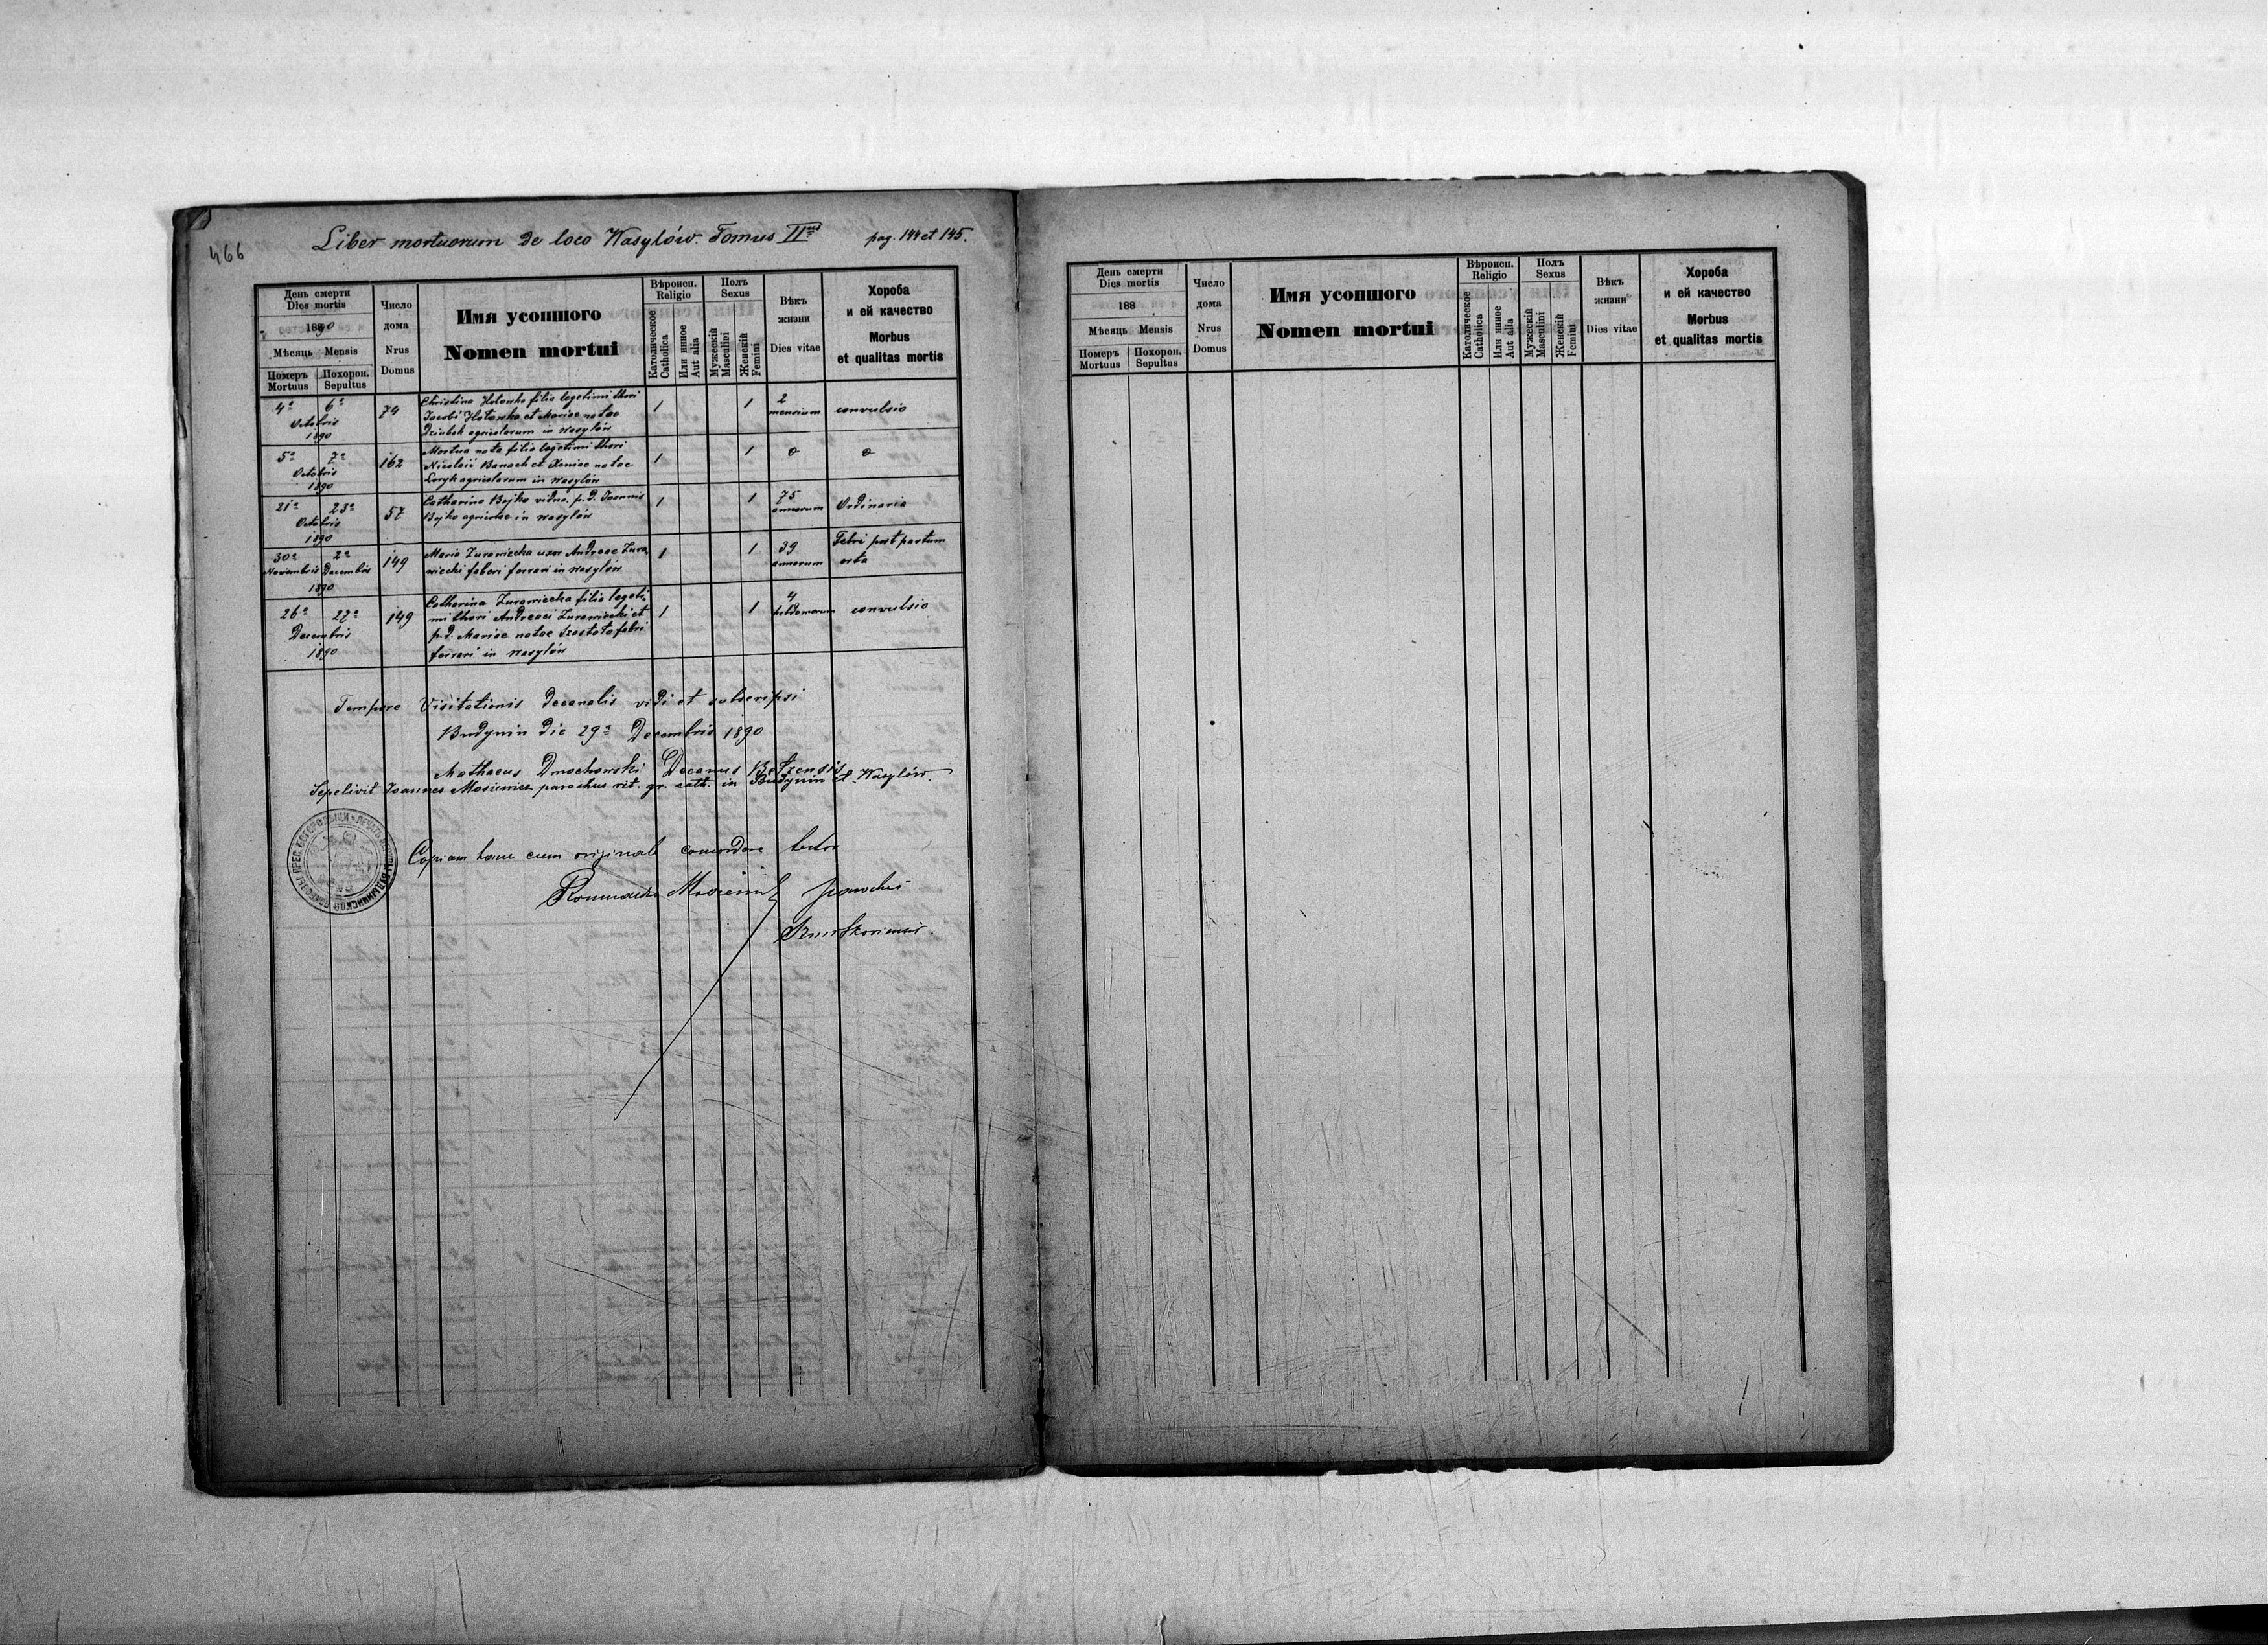 466
Liber mortuorum de loco Wasylów. Tomus IIus pag. 144 et 145.
День смерти
Dies mortis
1890
Мѣсяць Mensis
Померъ Похорон.
Mortuus Sepultus
Число
дома
Nrus
Domus
Имя усопшого
Nomen mortui
Вѣроисп.
Religio
Католическое
Catholica
Или инное
Aut alia
Полъ
Sexus
Мужескій
Masculini
Женскій
Femini
Вѣкъ
жизни
Dies vitae
Хороба
и ей качество
Morbus
et qualitas mortis
4a 6a
Octobris
1890
74
Christina Hotanka filia legetimi thori
Jacobi Hotanka et Mariae natae
Dziubek agricolarum in Wasylów
1 1
2
mensium
convulsio
5a 7a
Octobris
1890
162
Mortua nata filia legetimi thori
Nicolai Banach et Xeniae natae
agricolarum in Wasylów
1 1 0 0
21a 23a
Octobris
1890
57
Catharina Bojko vidua p. d. Joannis
Bojko agricolae in Wasylów
1 1
75
annorum
Ordinaria
30a 2a
Novembris Decembris
1890
149
Maria Zurawiecka uxor Andreae Zura
wiecki fabri ferrari in Wasylów
1 1
39
annorum
Febri post partum
orta
26a 27a
Decembris
1890
149
Catharina Zurawiecka filia legeti-
mi thori Andreaei Zurawiecki et
p. d. Mariae natae Szostata fabri
ferrari in Wasylów
1 1
4
hebdomarum
convulsio
Tempore Visitationis Decanalis vidi et subscripsi
Budynin die 29a Decembris 1890
Mathaeus Dmochowski Decanus Betzensis
Sepelivit Joannes Mosiewicz parochus rit. gr. cath. in Budynin et Wasylów.
Copiam hanc cum originali concordare testor
parochus
День смерти
Dies mortis
188
Мѣсяць Mensis
Померъ Похорон.
Mortuus Sepultus
Число
дома
Nrus
Domus
Имя усопшого
Nomen mortui
Вѣроисп.
Religio
Католическое
Catholica
Или инное
Aut alia
Полъ
Sexus
Мужескій
Masculini
Женскій
Femini
Вѣкъ
жизни
Dies vitae
Хороба
и ей качество
Morbus
et qualitas mortis